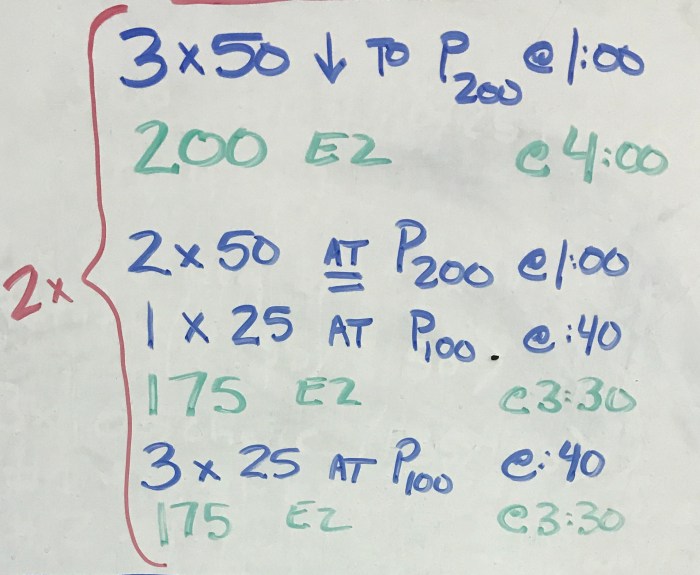 3 x 50 ↓ TO P200 @ 1:00
200 EZ @ 4:00
2 x 50 AT P200 @ 1:00
2x
1 x 25 AT P100. @ :40
175 EZ @ 3:30
3 x 25 AT P100 @ :40
175 EZ @ 3:30